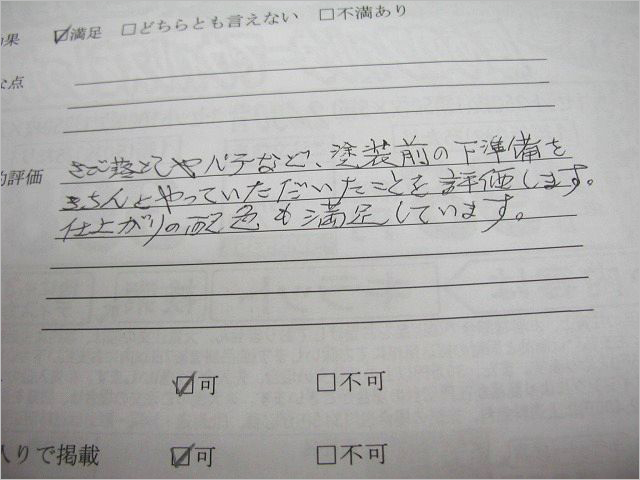 果 ☑満足 □どちらとも言えない □不満あり
点
評価 さび落としやパテなど、塗装前の下準備を
きちんとやっていただいたことを評価します。
仕上がりの配色も満足しています。
☑可 □不可
入りで掲載 ☑可 □不可